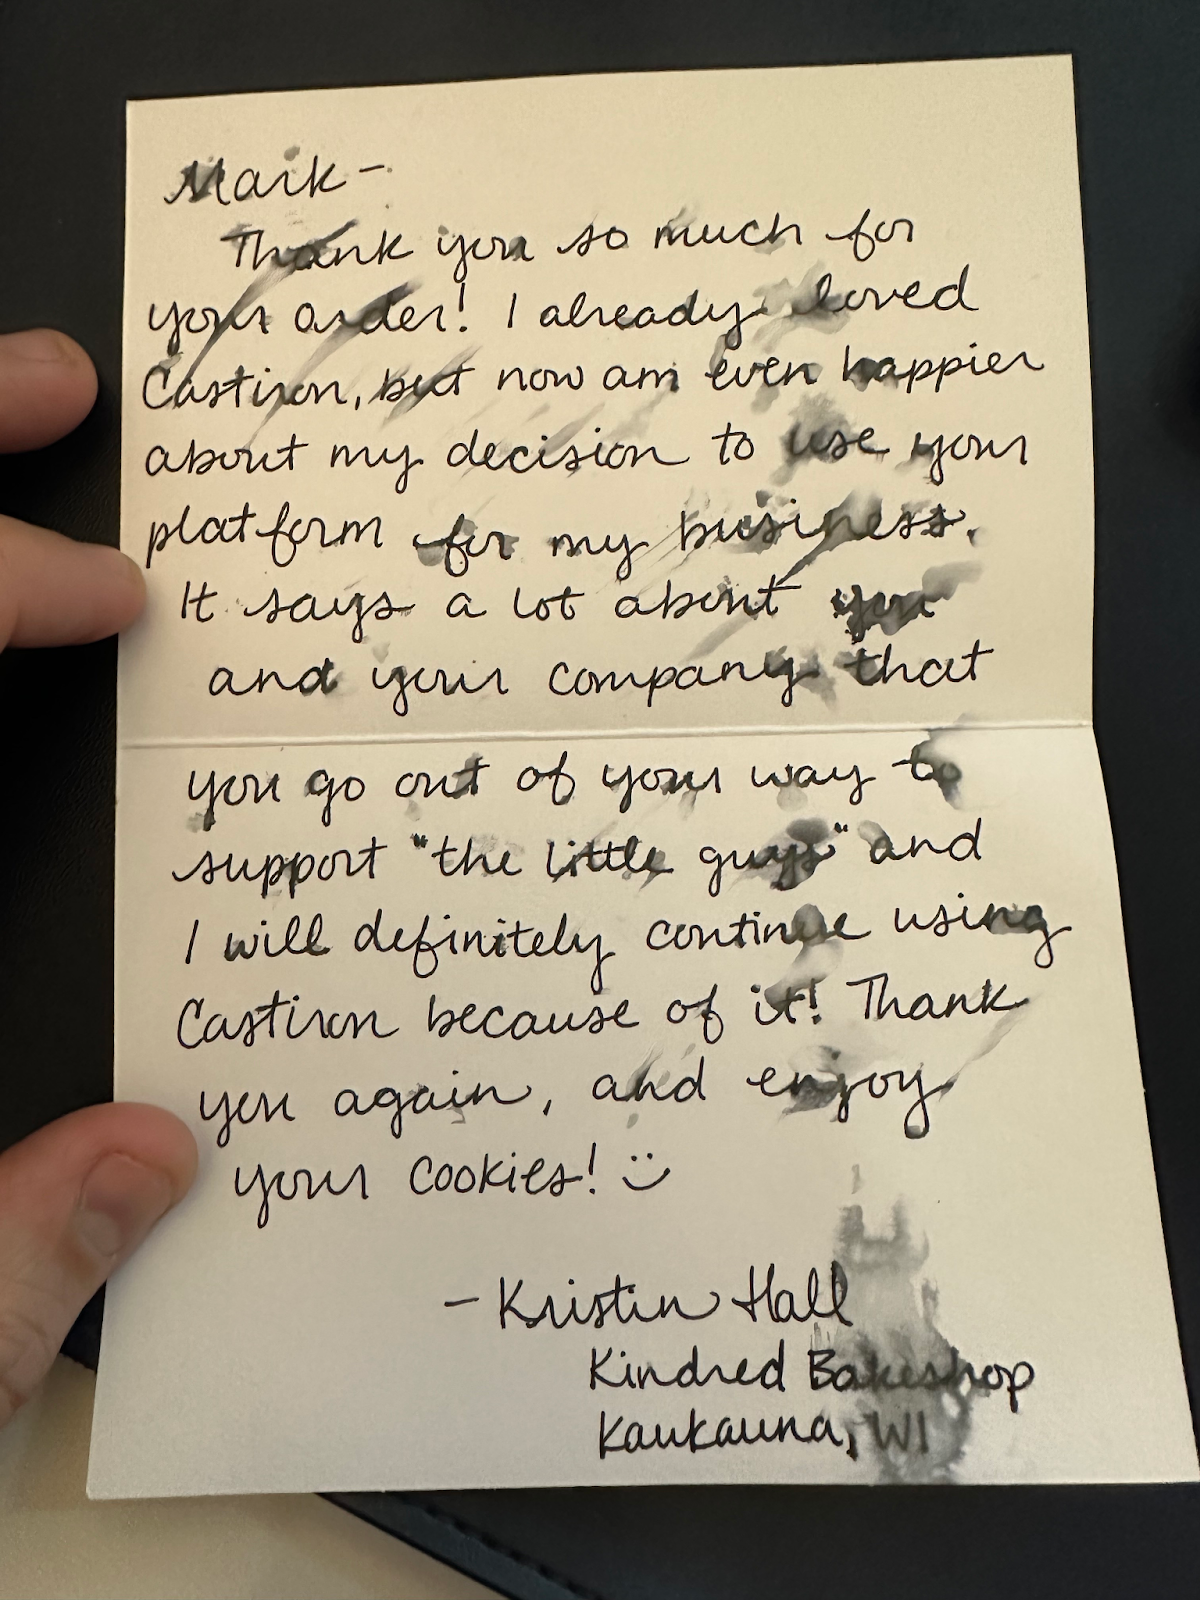 Mark-
Thank you so much for
your order! I already loved
Castiron, but now am even happier
about my decision to use your
platform for my business.
It says a lot about you
and your company that
you go out of your way to
support "the little guys" and
I will definitely continue using
Castiron because of it! Thank
you again, and enjoy
your cookies! :)
- Kristin Hall
Kindred Bakeshop
Kaukauna, WI